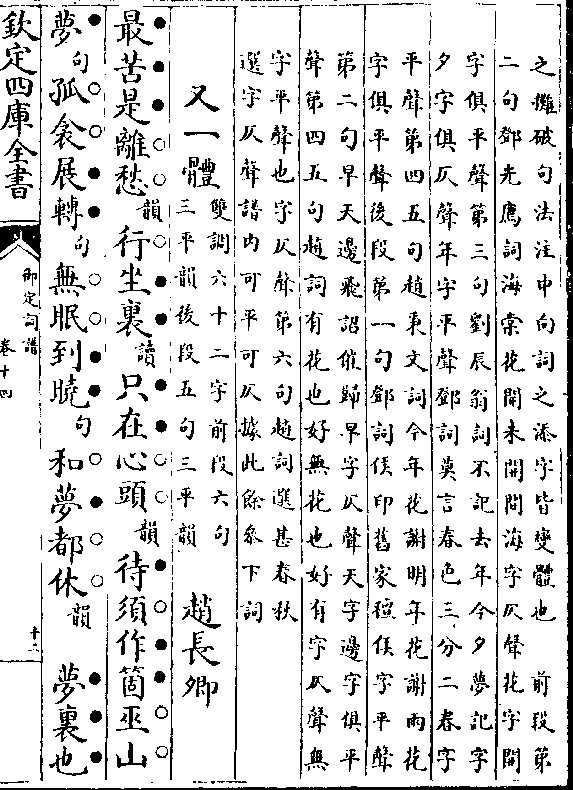 之攤破句法注中向詞之添字皆變體也　前段第
二句鄧光應詞海棠花開未開問海字仄聲花字開
字俱平聲第三句劉辰翁詞不記去年今夕夢記字
夕字俱仄聲年字平聲鄧詞莫言春色三分二春字
平聲第四五句趙秉文詞今年花謝明年花謝雨花
字俱平聲後段第一句鄧詞侯印舊家㮋侯字平聲
第二句早天邊飛詔催歸早字仄聲天字邊字俱平
聲第四五句趙詞有花也好無花也好有字仄聲無
字平聲也字仄聲第六句趙詞選甚春秋
選字仄聲譜内可平可仄據此餘叅下詞
又一體 雙調六十二字前段六句三平韻後段五句三平韻　趙長卿
最苦是離愁韻行坐裏讀只在心頭韻待須作箇巫山
夢句孤衾展轉句無眠到曉句和夢都休韻　夢裏也
欽定四庫全書
御定詞譜
卷十四
十二